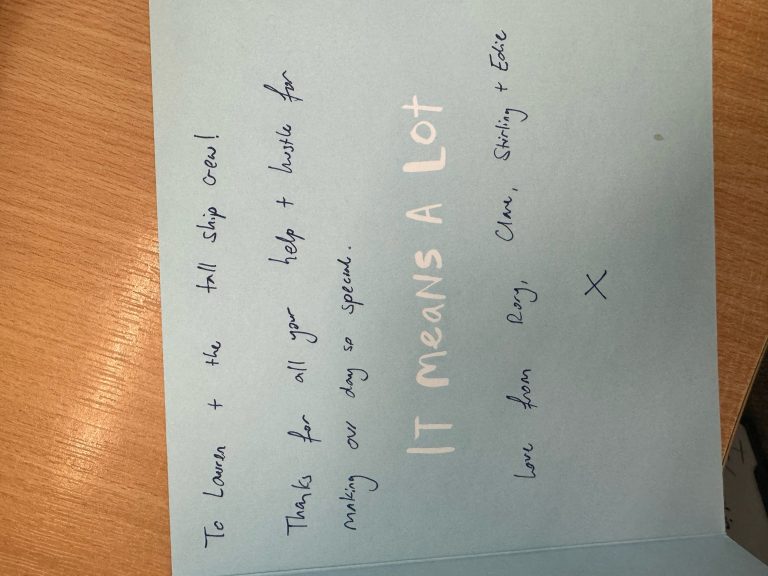 To Lauren + the tall ship crew!
Thanks for all your help + hustle for
making our day so special.
IT MeaNS A LOt
Love from Rory, Clare, Stirling + Edie
X